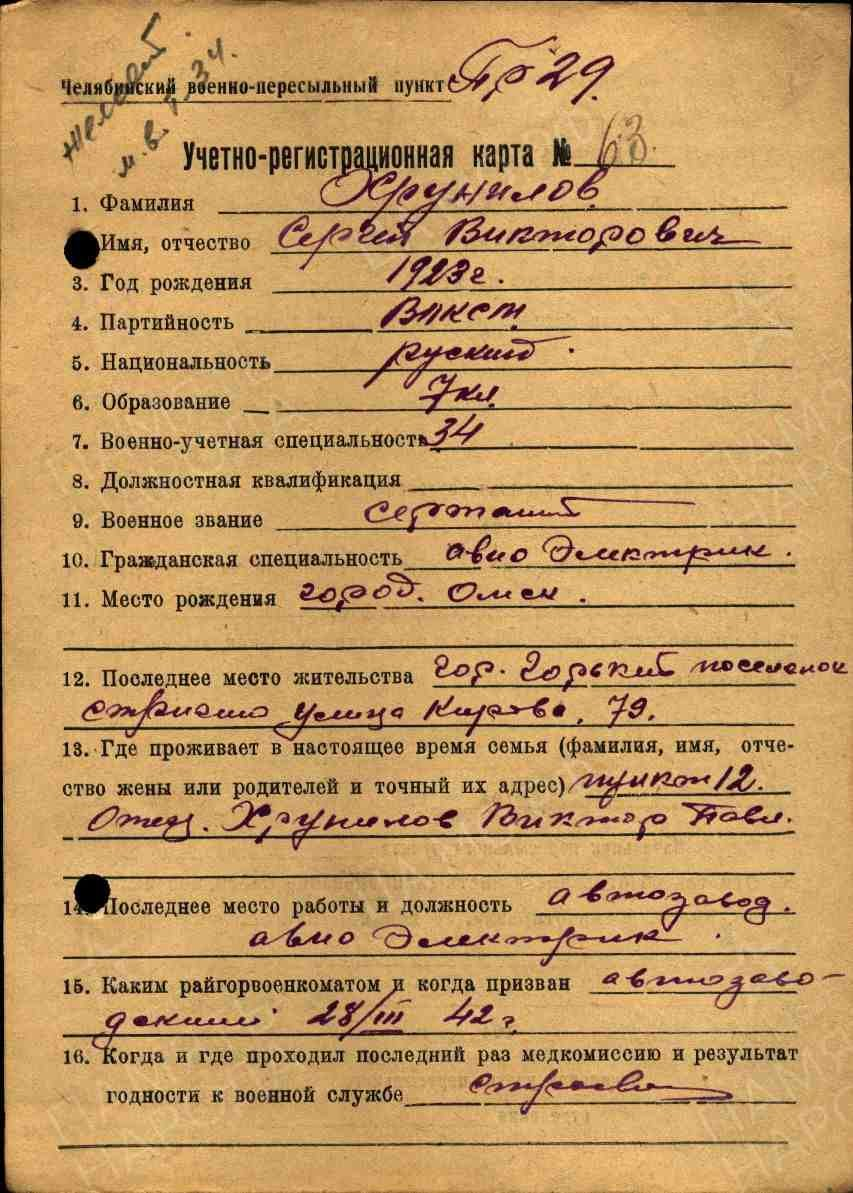 Челябинский военно-пересыльный пункт Пр 29.
Учетно-регистрационная карта № 63
1. Фамилия Хрунилов
Имя, отчество Сергей Викторович
3. Год рождения 1923 г.
4. Партийность ВЛКСМ
5. Национальность руский
6. Образование 7 кл.
7. Военно-учетная специальность 34
8. Должностная квалификация
9. Военное звание сержант
10. Гражданская специальность авио электрик.
11. Место рождения город. Омск.
12. Последнее место жительства гор. Горький поселок
улица Кирова. 79.
13. Где проживает в настоящее время семья (фамилия, имя, отче-
ство жены или родителей и точный их адрес) пункт 12.
Отец. Хрунилов Виктор Павл.
14. Последнее место работы и должность автозавод.
авио электрик.
15. Каким райгорвоенкоматом и когда призван автозаво-
дский 28/III 42 г.
16. Когда и где проходил последний раз медкомиссию и результат
годности к военной службе строевой